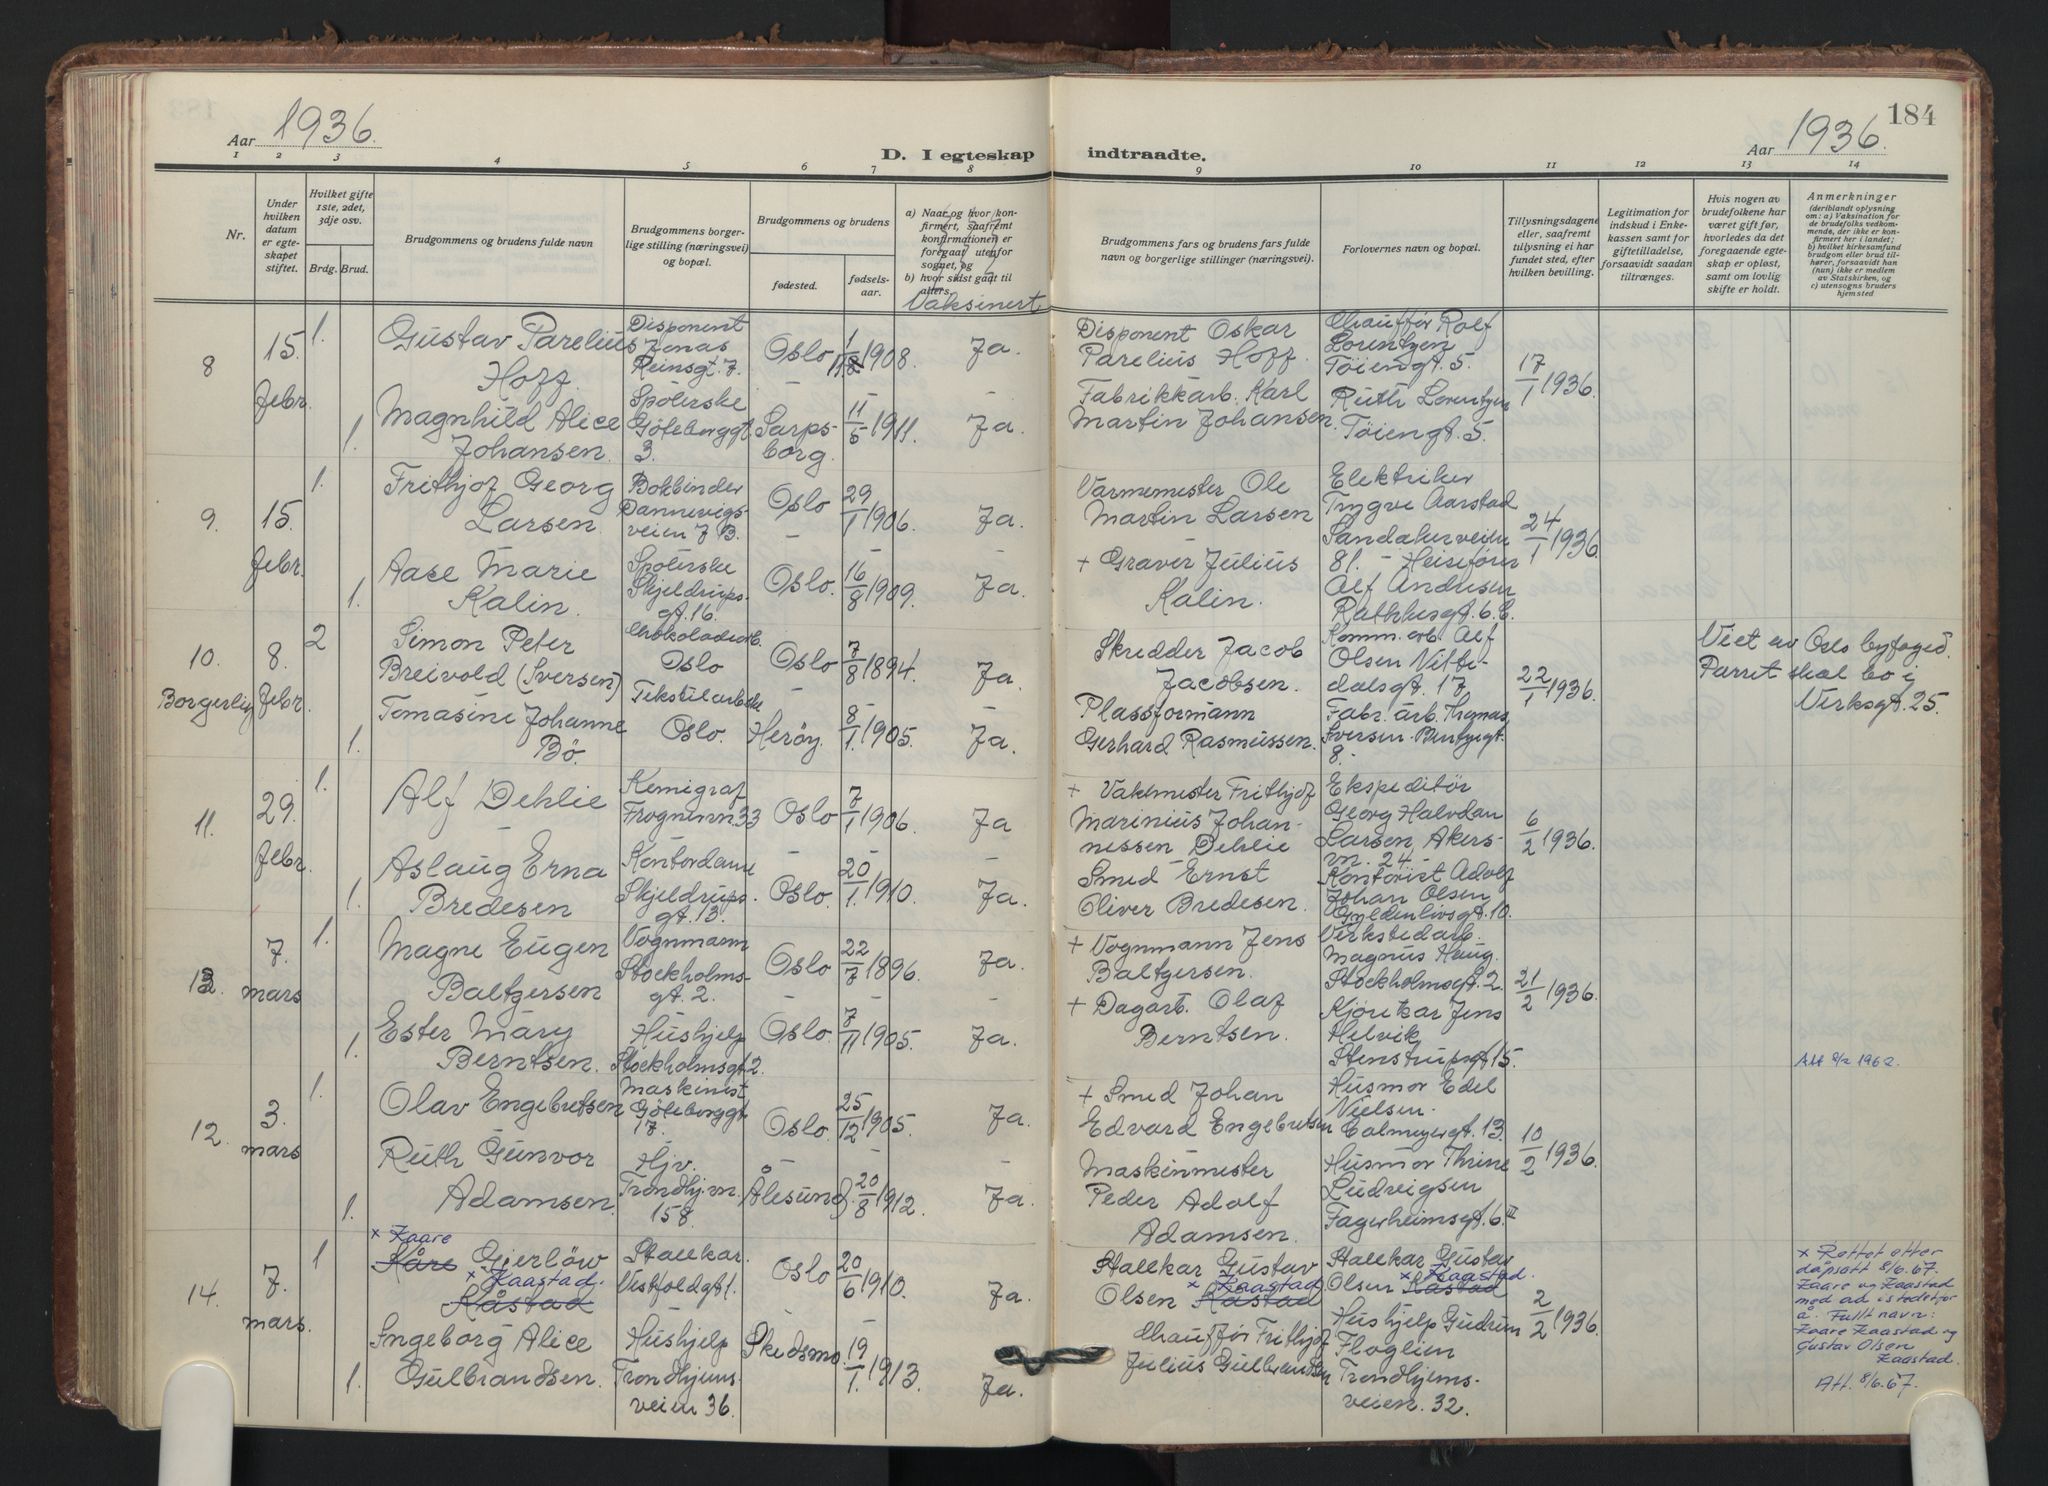 184
Aar 1936.
D. I egteskap indtraadte.
Aar 1936.
1 2 3 4 5 6 7 8 9 10 11 12 13 14
Nr.
Under hvilken datum er egteskapet stiftet.
Hvilket gifte 1ste, 2det, 3dje osv.
Brdg. Brud.
Brudgommens og brudens fulde navn
Brudgommens borgerlige stilling (næringsvei) og bopæl.
Brudgommens og brudens
fødested.
fødselsaar.
a) Naar og hvor konfirmert, saafremt konfirmationen er foregaat utenfor sognet, og
b) hvor sidst gaat til alters.
Vaksinert
Brudgommens fars og brudens fars fulde navn og borgerlige stillinger (næringsvei).
Forlovernes navn og bopæl.
Tillysningsdagene eller, saafremt tillysning ei har fundet sted, efter hvilken bevilling.
Legitimation for indskud i Enkekassen samt for giftetilladelse, forsaavidt saadan tiltrænges.
Hvis nogen av brudefolkene har været gift før, hvorledes da det foregaaende egteskap er opløst, samt om lovlig skifte er holdt.
Anmerkninger
(deriblandt oplysning om: a) Vaksination for de brudefolks vedkommende, der ikke er konfirmert her i landet; b) hvilket kirkesamfund brudgom eller brud tilhører, forsaavidt han (hun) ikke er medlem av Statskirken, og c) utensogns bruders hjemsted
8 15. febr. 1.
Gustav Parelius Hoff.
Disponent Jonas Reinsgt. 7.
Oslo 1908. Ja.
Disponent Oskar Parelius Hoff.
Chauffør Rolf Lorentzen Töiengt. 5.
17/1 1936.
1. Magnhild Alice Johansen.
Spölerske Göteborggt. 3.
Sarpsborg. 11/5 1911. Ja.
Fabrikkarb. Karl Martin Johansen.
Ruth Lorentzen Töiengt. 5.
9. 15. febr. 1.
Frithjof Georg Larsen.
Bokbinder Dannevigsveien 7 B.
Oslo 29/1 1906. Ja.
Varmemester Ole Martin Larsen
Elektriker Trygve Aarstad Sandakerveien 81. -
24/1 1936
1. Aase Marie Kalin.
Spölerske Skjeldrupsgt. 16.
Oslo. 16/8 1909. Ja.
+ Graver Julius Kalin.
Heisefører Alf Andresen Rathkesgt. 6. C.
10. Borgerlig 8. febr. 2
Simon Peter Breivold (Iversen)
Chokoladearb. Oslo
Oslo 7/8 1894. Ja.
Skredder Jacob Jacobsen.
Komm. arb. Alf Olsen Nittedalsgt. 17
22/1 1936.
Viet av Oslo byfoged. Parret skal bo i Verksgt. 25.
1. Tomasine Johanne Bö.
Tekstilarbeiderske Oslo.
Herøy. 8/1 1905. Ja.
Plassformann Gerhard Rasmussen.
Fabr. arb. Iversen 8.
11. 29. febr. 1.
Alf Dehlie
Kemigraf Frognervn. 33
Oslo 7/1 1906. Ja
+ Vaktmester Frithjof Marinius Johannessen Dehlie
Ekspeditör Georg Halvdan Larsen Akersvn. 24.
6/2 1936.
1. Aslaug Erna Bredesen
Kontordame Skjeldrupsgt. 13.
Oslo. 20/1 1910. Ja.
Smed Ernst Oliver Bredesen.
Kontorist Adolf Johan Olsen Gyldenlövsgt. 10.
13. 7. mars 1.
Magne Eugen Baltzersen
Vognmann Stockholmsgt. 2.
Oslo 22/7 1896. Ja.
+ Vognmann Jens Baltzersen.
Verkstedarb. Magnus Haug. Stockholmsgt. 2.
21/2 1936.
1. Ester Mary Berntsen.
Hushjelp Stockholmsgt. 2.
Oslo. 7/11 1905. Ja.
+ Dagarb. Olaf Berntsen.
Kjørekar Jens Helvik Stenstrupsgt. 15.
12. 3. mars 1.
Olav Engebretsen
Maskinist Göteborggt. 17.
Oslo. 25/12 1905. Ja.
+ Smed Johan Edvard Engebretsen
Husmor Edel Nielsen. Calmeyergt. 13.
10/2 1936.
Att 8/2 1962.
1. Ruth Gunvor Adamsen.
Hjv. Trondhj.vn. 158.
Ålesund. 20/8 1912. Ja.
Maskinmester Peder Adolf Adamsen.
Husmor Thrine Ludvigsen Fagerheimsgt. 6. III
14. 7. mars. 1
x Kaare
Kåre Gierlöw
x Kaastad.
Kåstad
Stallkar. Vestfoldgt. 1.
Oslo 20/6 1910. Ja.
Stallkar Gustav Olsen Kåstad
x Kaastad
Stallkar Gustav Olsen Kåstad
x Kaastad.
2/2 1936.
x Rettet etter dåpsatt 8/6.67. Kaare og Kaastad med aa istedetfor å. Fullt navn: Kaare Kaastad og Gustav Olsen Kaastad.
Att. 8/6.67.
1. Ingeborg Alice Gulbrandsen.
Hushjelp Trondhjemsveien 36.
Skedsmo. 19/1. 1913. Ja.
Chauffør Frithjof Julius Gulbrandsen
Hushjelp Gudrun Floglien Trondhjemsveien. 32.